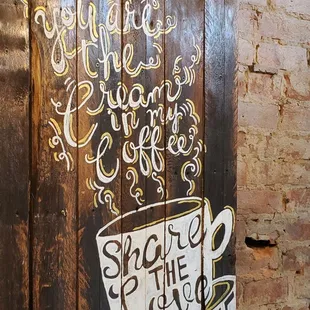 you are
the
Cream
in my
Coffee
Share
THE
Love